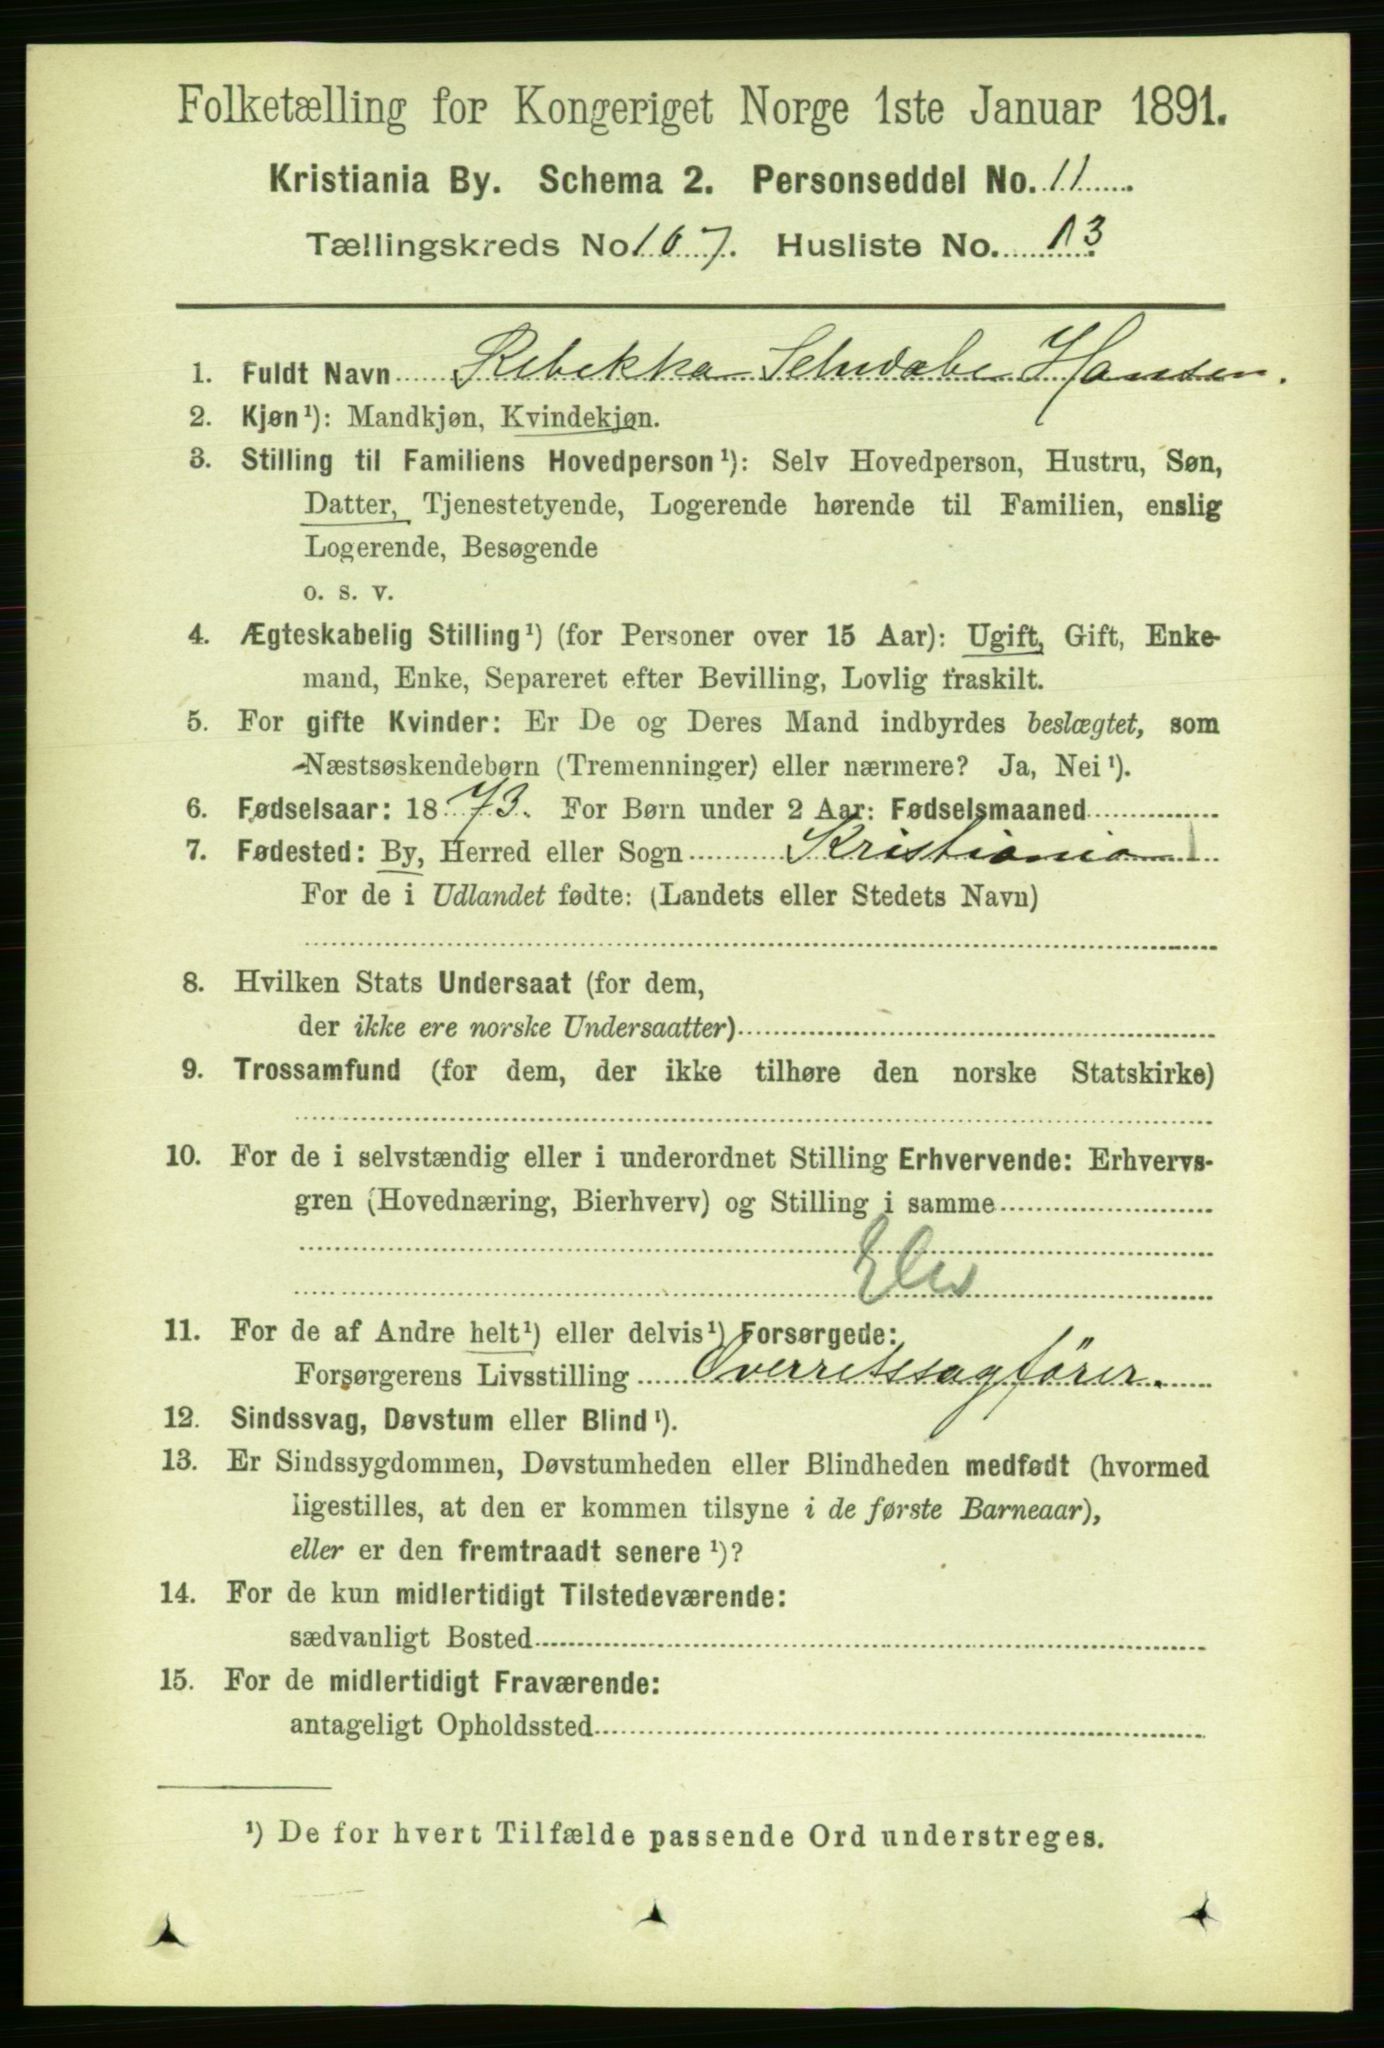 Folketælling for Kongeriget Norge 1ste Januar 1891.
Kristiania By. Schema 2. Personseddel No. 11
Tællingskreds No 107. Husliste No. 13
1. Fuldt Navn Rebekka Schwabe Hansen.
2. Kjøn¹): Mandkjøn, Kvindekjøn.
3. Stilling til Familiens Hovedperson¹): Selv Hovedperson, Hustru, Søn,
Datter, Tjenestetyende, Logerende hørende til Familien, enslig
Logerende, Besøgende
o. s. v.
4. Ægteskabelig Stilling¹) (for Personer over 15 Aar): Ugift, Gift, Enke-
mand, Enke, Separeret efter Bevilling, Lovlig fraskilt.
5. For gifte Kvinder: Er De og Deres Mand indbyrdes beslægtet, som
Næstsøskendebørn (Tremenninger) eller nærmere? Ja, Nei¹).
6. Fødselsaar: 1873. For Børn under 2 Aar: Fødselsmaaned
7. Fødested: By, Herred eller Sogn Kristiania
For de i Udlandet fødte: (Landets eller Stedets Navn)
8. Hvilken Stats Undersaat (for dem,
der ikke ere norske Undersaatter)
9. Trossamfund (for dem, der ikke tilhøre den norske Statskirke)
10. For de i selvstændig eller i underordnet Stilling Erhvervende: Erhvervs-
gren (Hovednæring, Bierhverv) og Stilling i samme
Elev
11. For de af Andre helt¹) eller delvis¹) Forsørgede:
Forsørgerens Livsstilling Overretssagfører.
12. Sindssvag, Døvstum eller Blind¹).
13. Er Sindssygdommen, Døvstumheden eller Blindheden medfødt (hvormed
ligestilles, at den er kommen tilsyne i de første Barneaar),
eller er den fremtraadt senere¹)?
14. For de kun midlertidigt Tilstedeværende:
sædvanligt Bosted
15. For de midlertidigt Fraværende:
antageligt Opholdssted
¹) De for hvert Tilfælde passende Ord understreges.